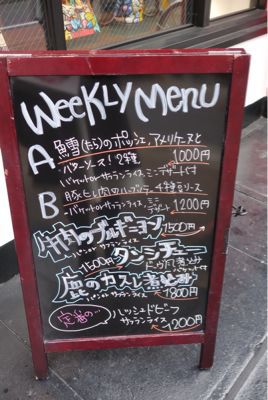 Weekly Menu
A 鱈(たら)のポッシェ、アメリケーヌと
バターソース！2種
1000円
バケットorサフランライス ミニデザート付
B 豚ヒレ肉のハーブソテー 
バケットorサフランライス ミニデザート 1200円
牛肉のブルギニョン 1500円
パンorサフランライス
タンシチュー
1500円
鹿のカスレ煮込み
パンorサフランライス 1800円
定番の…
ハッシュドビーフ
サフランライス
1200円